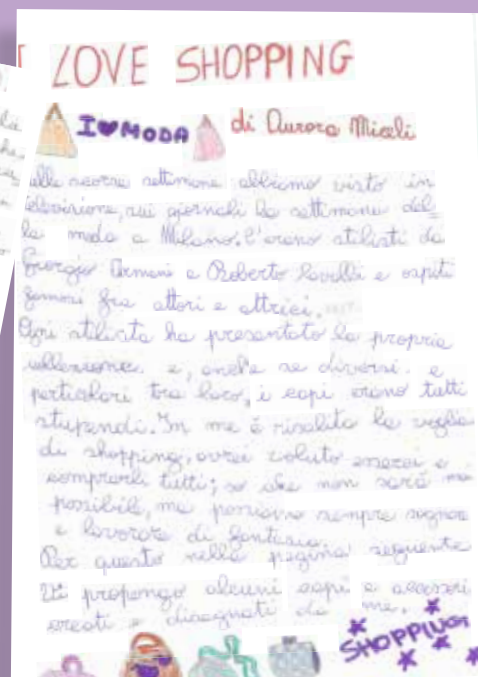 I LOVE SHOPPING
I♥MODA di Aurora Miceli
nelle scorse settimane abbiamo visto in
televisione, sui giornali la settimana del
la moda a Milano. C'erano stilisti da
Giorgio Armani a Roberto Cavalli e ospiti
famosi fra attori e attrici.
Ogni stilista ha presentato la propria
collezione e, anche se diversi e
particolari tra loro, i capi erano tutti
stupendi. In me è risalita la voglia
di shopping, avrei voluto esserci e
comprarli tutti; so che non sarà mai
possibile, ma possiamo sempre sognare
e lavorare di fantasia.
Per questo nella pagina seguente
Vi propongo alcuni capi e accessori
creati e disegnati da me.
SHOPPING